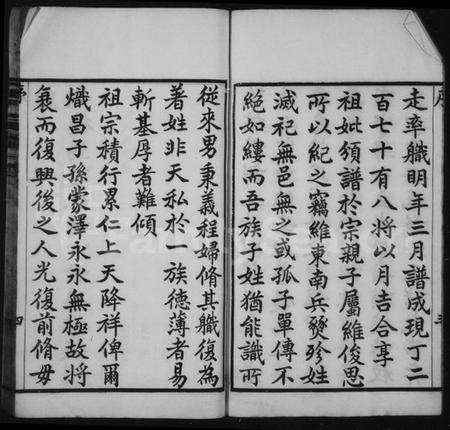 走率職明年三月譜成現丁二
百七十有八將以月吉合享
祖妣頒譜於宗親子屬維俊思
所以紀之竊維東南兵燹殄姓
滅祀無邑無之或孤子單傳不
絕如縷而吾族子姓猶能識所
三
從來男秉義程婦脩其職復為
著姓非天私於一族德薄者易
斬基厚者難傾
祖宗積行累仁上天降祥俾爾
熾昌子孫蒙澤永永無極故將
衰而復興後之人光復前脩毋
序
四